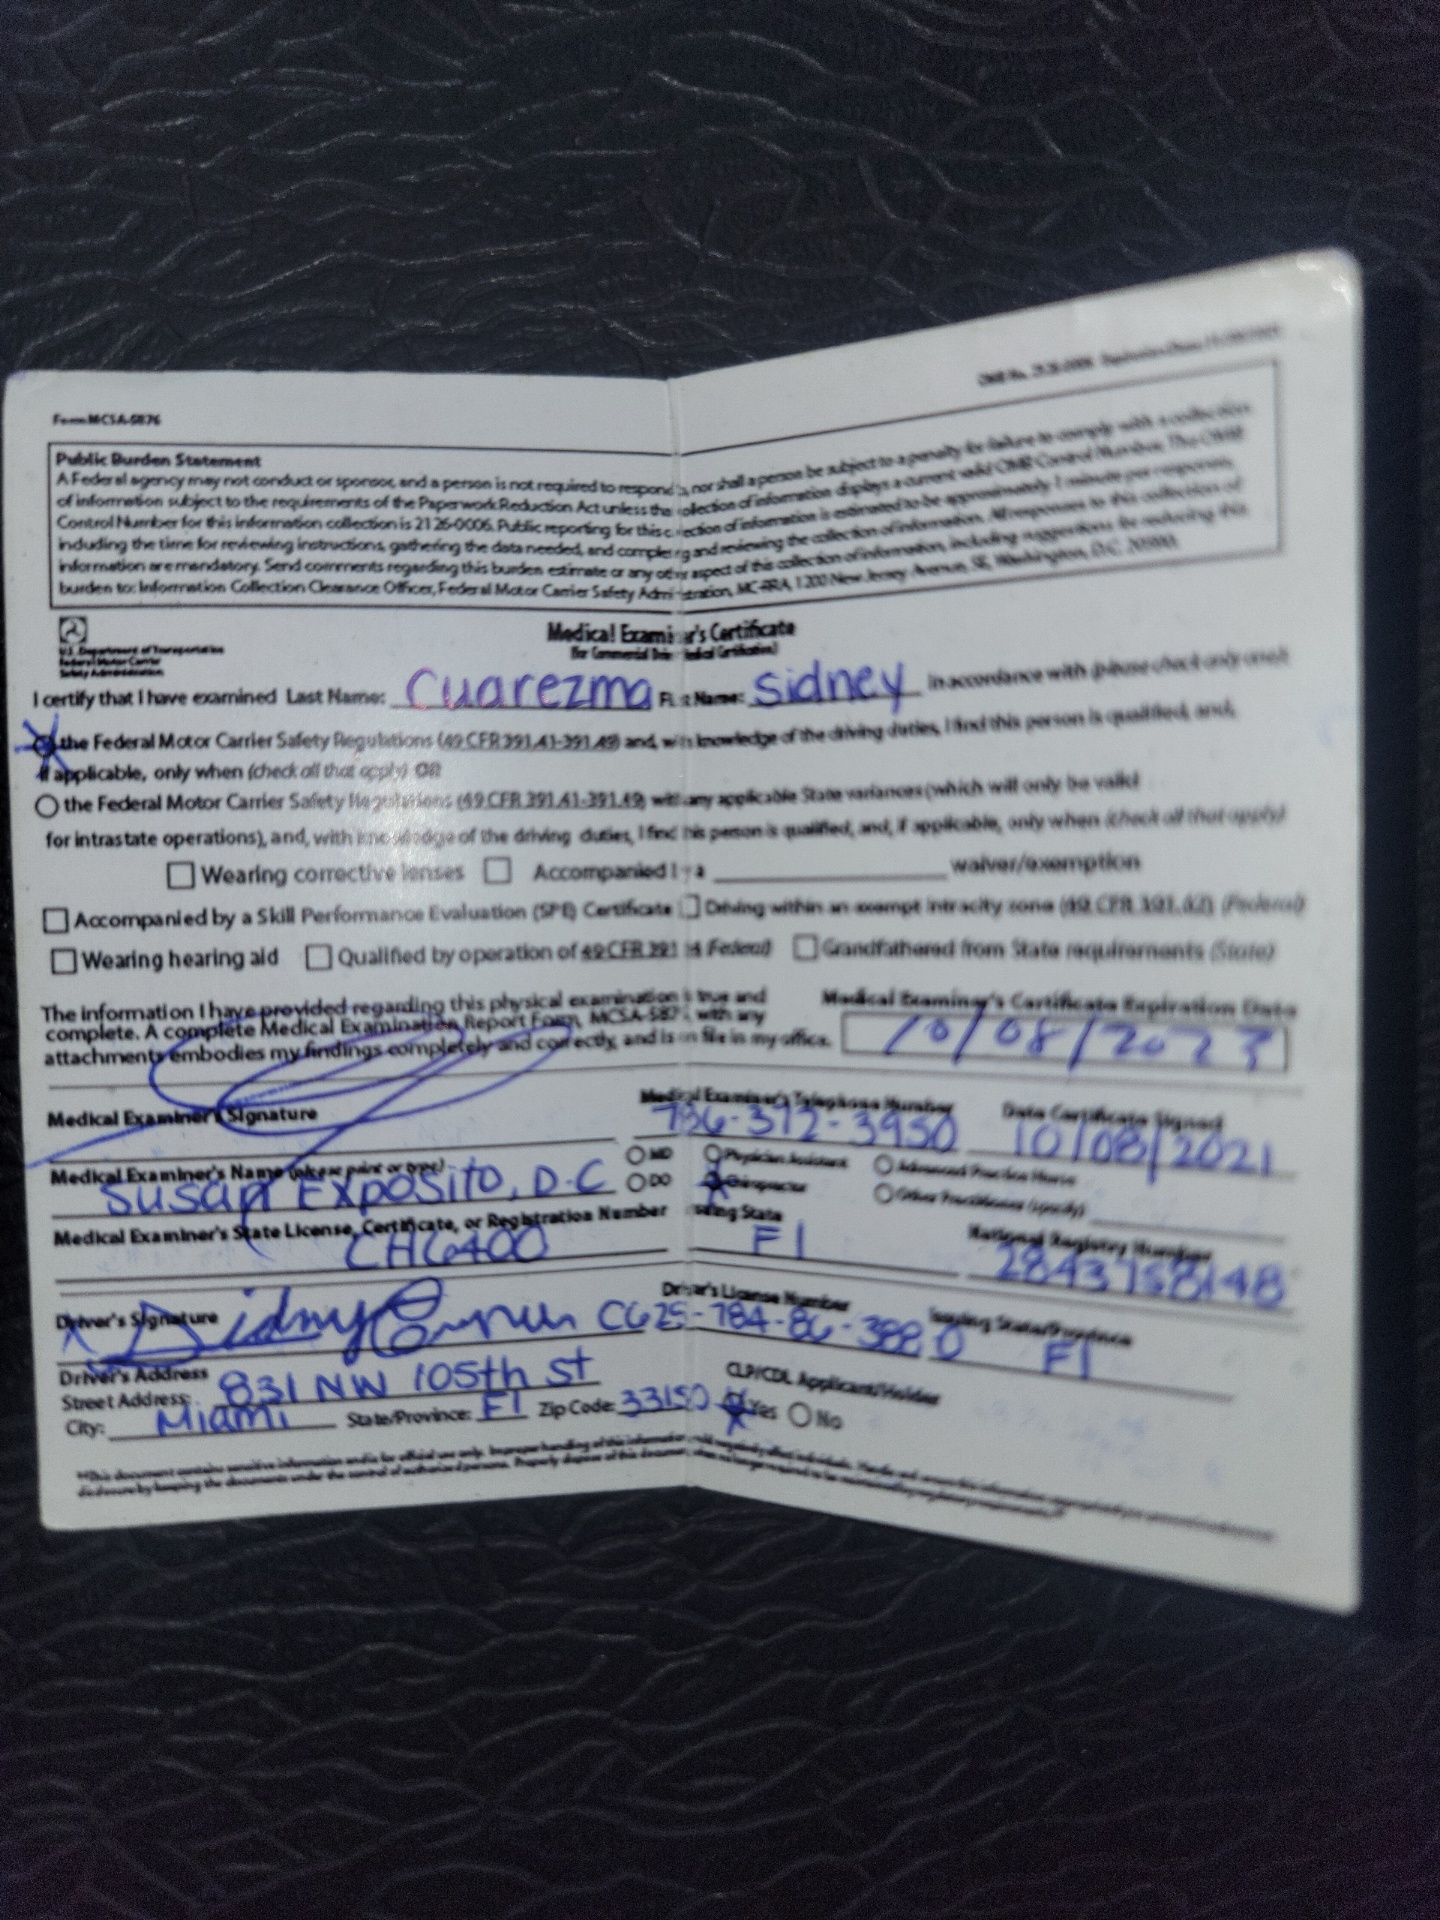 Form MCSA-5876
OMB No. 2126-0006 Expiration Date:
Public Burden Statement
A Federal agency may not conduct or sponsor, and a person is not required to respond to, nor shall a person be subject to a penalty for failure to comply with a collection
of information subject to the requirements of the Paperwork Reduction Act unless the collection of information displays a current valid OMB Control Number. The OMB
Control Number for this information collection is 2126-0006. Public reporting for this collection of information is estimated to be approximately 1 minute per response,
including the time for reviewing instructions, gathering the data needed, and completing and reviewing the collection of information. All responses to this collection of
information are mandatory. Send comments regarding this burden estimate or any other aspect of this collection of information, including suggestions for reducing this
burden to: Information Collection Clearance Officer, Federal Motor Carrier Safety Administration, MC-RRA, 1200 New Jersey Avenue, SE, Washington, D.C. 20590.
U.S. Department of Transportation
Federal Motor Carrier
Safety Administration
Medical Examiner's Certificate
(for Commercial Driver Medical Certification)
I certify that I have examined Last Name: Cuarezma First Name: Sidney in accordance with (please check only one):
the Federal Motor Carrier Safety Regulations (49 CFR 391.41-391.49) and, with knowledge of the driving duties, I find this person is qualified, and,
if applicable, only when (check all that apply) OR
the Federal Motor Carrier Safety Regulations (49 CFR 391.41-391.49) with any applicable State variances (which will only be valid
for intrastate operations), and, with knowledge of the driving duties, I find this person is qualified, and, if applicable, only when (check all that apply)
Wearing corrective lenses Accompanied by a waiver/exemption
Accompanied by a Skill Performance Evaluation (SPE) Certificate Driving within an exempt intracity zone (49 CFR 391.62) (Federal)
Wearing hearing aid Qualified by operation of 49 CFR 391.64 (Federal) Grandfathered from State requirements (State)
The information I have provided regarding this physical examination is true and
complete. A complete Medical Examination Report Form, MCSA-5875, with any
attachments embodies my findings completely and correctly, and is on file in my office.
Medical Examiner's Certificate Expiration Date
10/08/2023
Medical Examiner's Signature
Medical Examiner's Telephone Number
786-372-3950
Date Certificate Signed
10/08/2021
Medical Examiner's Name (please print or type)
Susan Exposito, D.C
MD Physician Assistant Advanced Practice Nurse
DO Chiropractor Other Practitioner (specify)
Medical Examiner's State License, Certificate, or Registration Number
CH6400
Issuing State
Fl
National Registry Number
2843758148
Driver's Signature
Sidney
Driver's License Number
C625-784-86-388 0
Issuing State/Province
Fl
Driver's Address
Street Address: 831 NW 105th St
City: Miami State/Province: Fl Zip Code: 33150
CLP/CDL Applicant/Holder
Yes No
**This document contains sensitive information and is for official use only. Improper handling of this information could negatively affect individuals.
disclosure by keeping the documents under the control of authorized persons. Properly dispose of this document when no longer required to be maintained by regulatory requirements.**